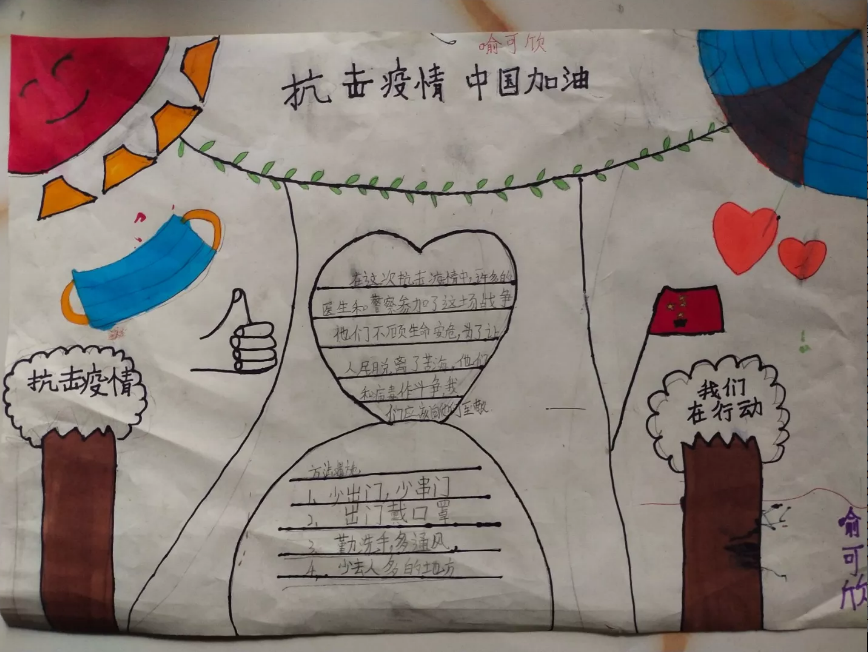 喻可欣
抗击疫情 中国加油
在这次抗击疫情中，许多的
医生和警察参加了这场战争
他们不顾生命安危，为了让
人民脱离了苦海，他们
和病毒作斗争，我
们应该向他们致敬
抗击疫情
我们
在行动
方法
1. 少出门，少串门
2. 出门戴口罩
3. 勤洗手，多通风
4. 少去人多的地方
喻可欣